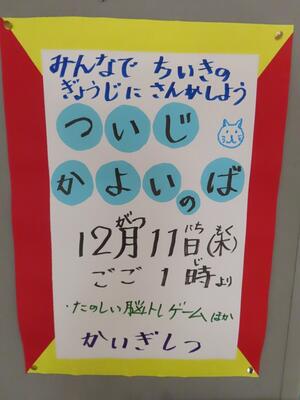 みんなで ちいきの
ぎょうじに さんかしよう
ついじ
かよいのば
がつ にち もく
12月11日(木)
じ
ごご1時より
・たのしい脳トレゲームほか
かいぎしつ